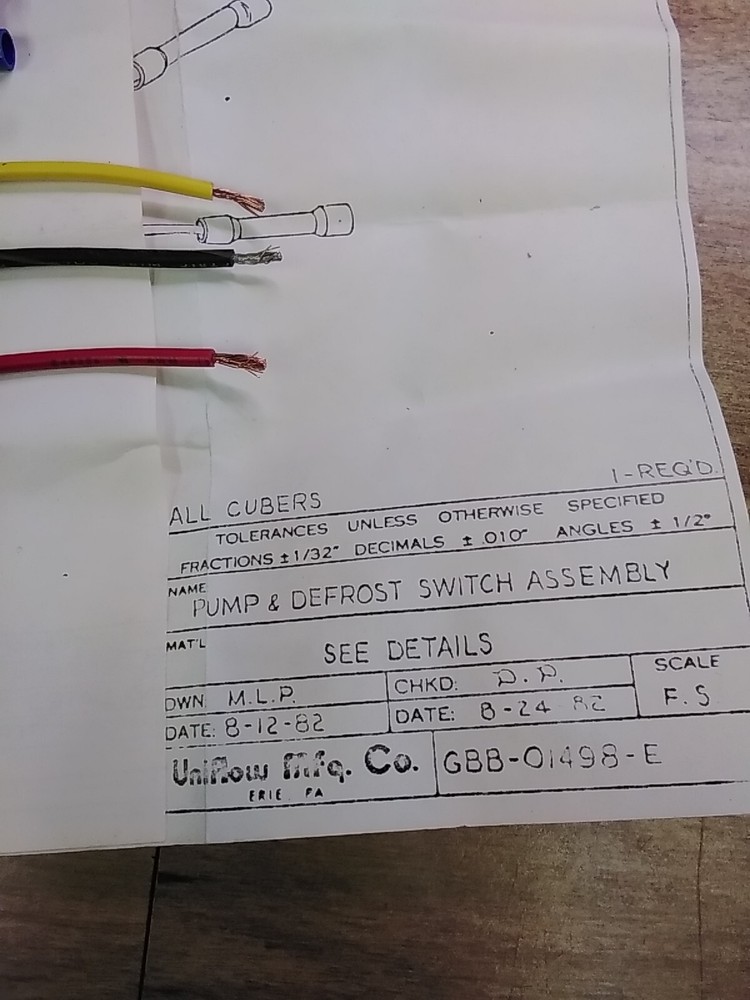 1-REQ'D.
ALL CUBERS
TOLERANCES UNLESS OTHERWISE SPECIFIED
FRACTIONS ± 1/32" DECIMALS ± .010" ANGLES ± 1/2°
NAME
PUMP & DEFROST SWITCH ASSEMBLY
MAT'L
SEE DETAILS
DWN: M.L.P.
CHKD: D.P.
SCALE
DATE: 8-12-82
DATE: 8-24 82
F.S
Uniflow Mfg. Co.
GBB-01498-E
ERIE PA